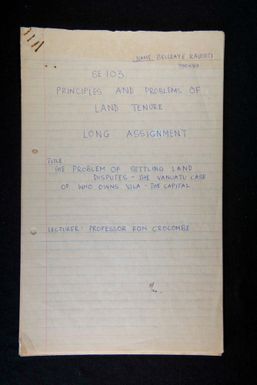 NAME:
SE 103
PRINCIPLES AND PROBLEMS OF
LAND TENURE
LONG ASSIGNMENT
TITLE
THE PROBLEM OF SETTLING LAND
DISPUTES - THE VANUATU CASE
OF WHO OWNS VILA - THE CAPITAL
LECTURER: PROFESSOR RON CROCOMBE